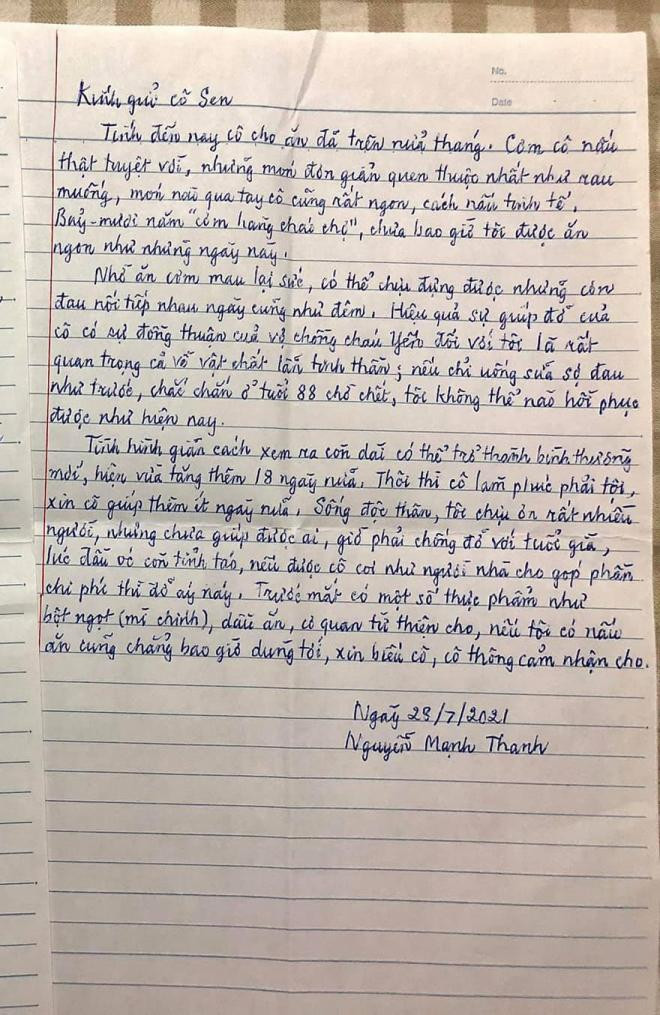 No.
Date
Kính gửi cô Sen
Tính đến nay cô cho ăn đã trên nửa tháng. Cơm cô nấu
thật tuyệt vời, những món đơn giản quen thuộc nhất như rau
muống, món nào qua tay cô cũng rất ngon, cách nấu tinh tế.
Bảy-mươi năm "cơm hàng cháo chợ", chưa bao giờ tôi được ăn
ngon như những ngày này.
Nhờ ăn cơm mau lại sức, có thể chịu đựng được những cơn
đau nối tiếp nhau ngày cũng như đêm. Hiệu quả sự giúp đỡ của
cô có sự đồng thuận của vợ chồng cháu Yến đối với tôi là rất
quan trọng cả về vật chất lẫn tinh thần; nếu chỉ uống sữa sợ đau
như trước, chắc chắn ở tuổi 88 chờ chết, tôi không thể nào hồi phục
được như hiện nay.
Tình hình giãn cách xem ra còn dài có thể trở thành bình thường
mới, hiện vừa tăng thêm 18 ngày nữa. Thôi thì cô làm phúc phải tội,
xin cô giúp thêm ít ngày nữa. Sống độc thân, tôi chịu ơn rất nhiều
người, nhưng chưa giúp được ai, giờ phải chống đỡ với tuổi già,
lúc đầu óc còn tỉnh táo, nếu được cô coi như người nhà cho góp phần
chi phí thì đỡ áy náy. Trước mắt có một số thực phẩm như
bột ngọt (mì chính), dầu ăn, cơ quan từ thiện cho, nếu tôi có nấu
ăn cũng chẳng bao giờ dùng tới, xin biếu cô, cô thông cảm nhận cho.
Ngày 29/7/2021
Nguyễn Mạnh Thanh